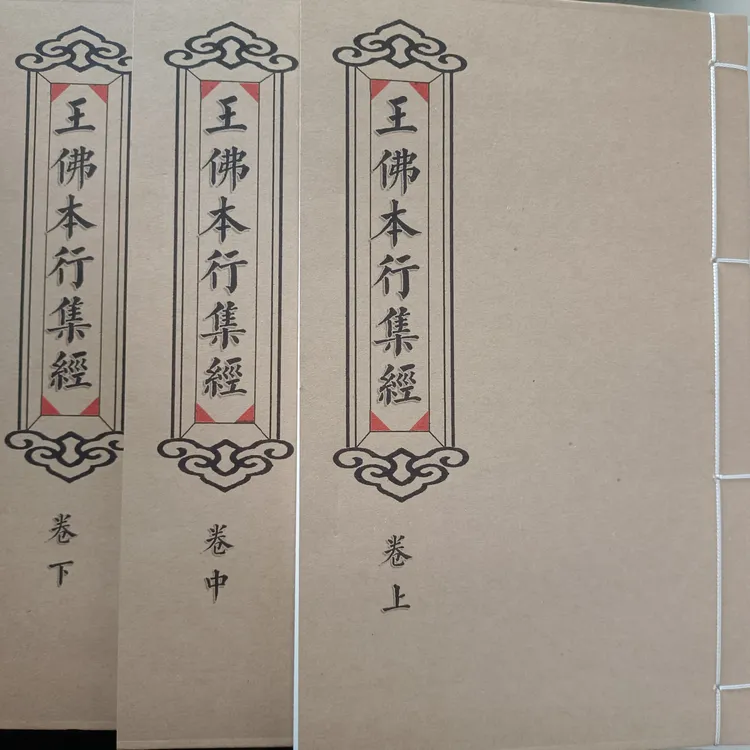 王佛本行集經
卷上
王佛本行集經
卷中
王佛本行集經
卷下